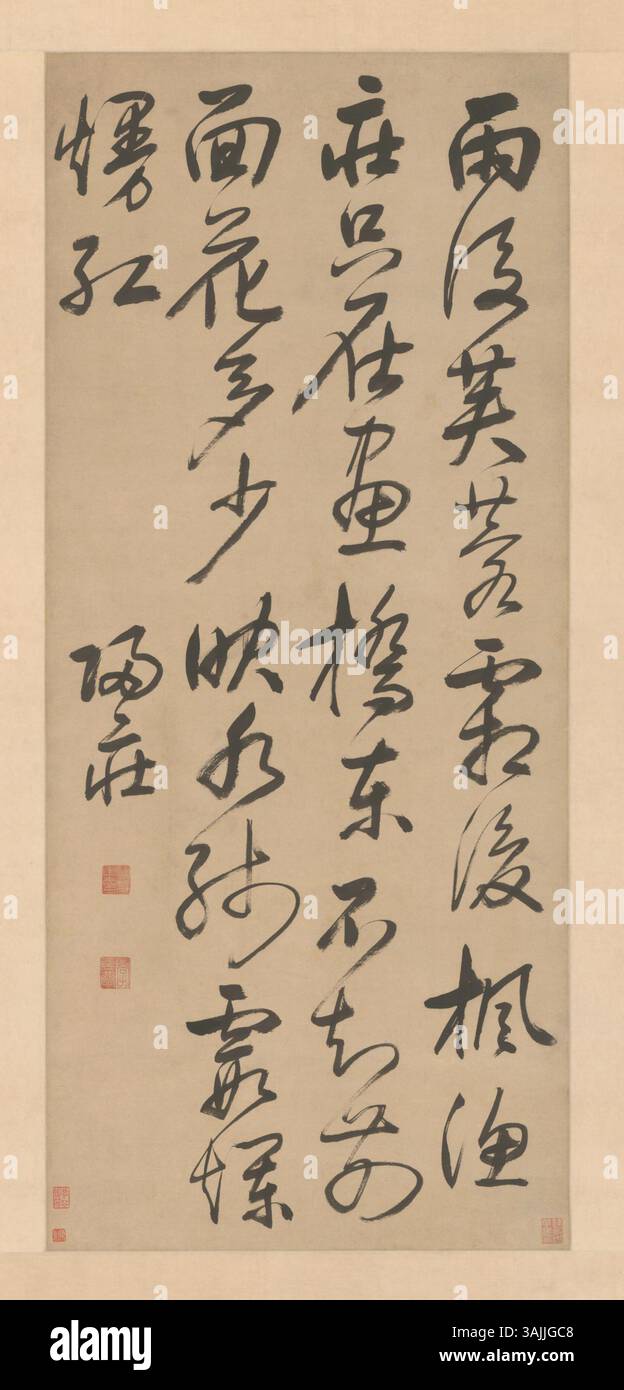 雨後芙蓉霜後楓漁
莊只在畫橋東不知前
面花多少映水殘霞爛
熳紅
歸莊
alamy
Image ID: 3AJJGC8
www.alamy.com